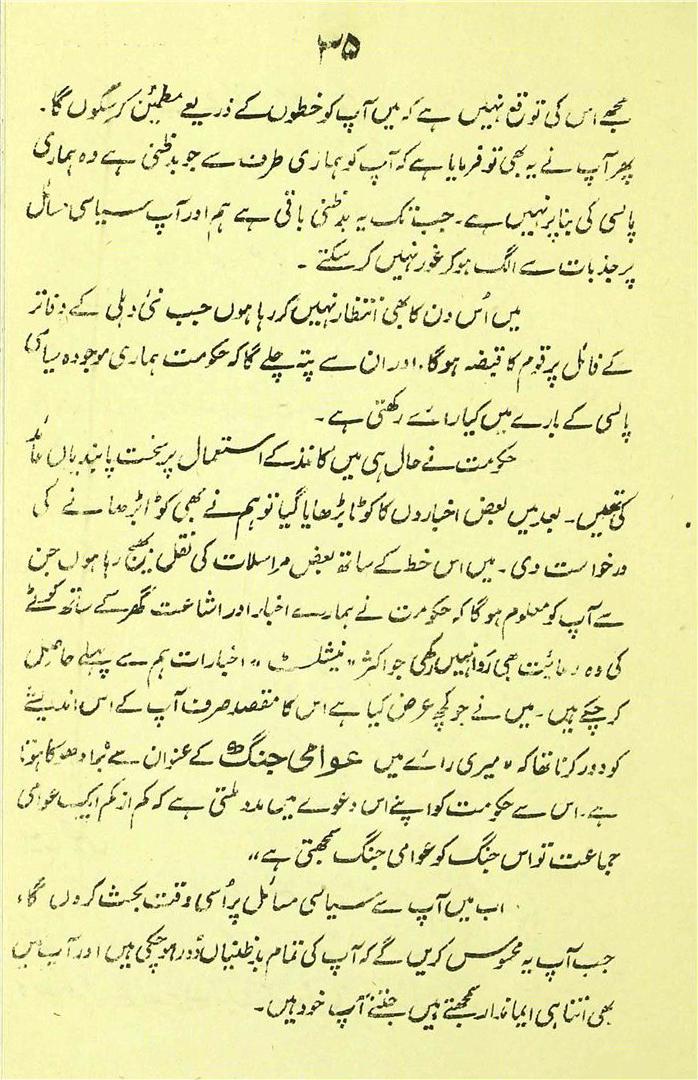 ۳۵
مجھے اس کی توقع نہیں ہے کہ میں آپ کو خطوں کے ذریعے مطمئن کر سکوں گا۔
پھر آپ نے یہ بھی تو فرمایا ہے کہ آپ کو ہماری طرف سے جو بدظنی ہے وہ ہماری
پالسی کی بنا پر نہیں ہے۔ جب تک یہ بدظنی باقی ہے ہم اور آپ سیاسی مسائل
پر جذبات سے الگ ہو کر غور نہیں کر سکتے۔
میں اُس دن کا بھی انتظار نہیں کر رہا ہوں جب نئی دہلی کے دفاتر
کے فائل پر قوم کا قبضہ ہو گا۔ اور ان سے پتہ چلے گا کہ حکومت ہماری موجودہ سیاسی
پالسی کے بارے میں کیا رائے رکھتی ہے۔
حکومت نے حال ہی میں کاغذ کے استعمال پر سخت پابندیاں عائد
کی تھیں۔ بعد میں بعض اخباروں کا کوٹا بڑھایا گیا تو ہم نے بھی کوٹا بڑھانے کی
درخواست دی۔ میں اس خط کے ساتھ بعض مراسلات کی نقل بھیج رہا ہوں جن
سے آپ کو معلوم ہو گا کہ حکومت نے ہمارے اخبار اور اشاعت گھر کے ساتھ کوٹے
کی وہ رعائیت بھی روا نہیں رکھی جو اکثر "نیشلسٹ" اخبارات ہم سے پہلے حاصل
کر چکے ہیں۔ میں نے جو کچھ عرض کیا ہے اس کا مقصد صرف آپ کے اس اندیشے
کو دور کرنا تھا کہ "میری رائے میں عوامی جنگ کے عنوان سے بڑا دھوکا ہوتا
ہے۔ اس سے حکومت کو اپنے اس دعوے میں مدد ملتی ہے کہ کم از کم ایک عوامی
جماعت تو اس جنگ کو عوامی جنگ سمجھتی ہے"
اب میں آپ سے سیاسی مسائل پر اُسی وقت بحث کروں گا،
جب آپ یہ محسوس کریں گے کہ آپ کی تمام بدظنیاں دُور ہو چکی ہیں اور آپ ہمیں
بھی اتنا ہی ایماندار سمجھتے ہیں جتنے آپ خود ہیں۔